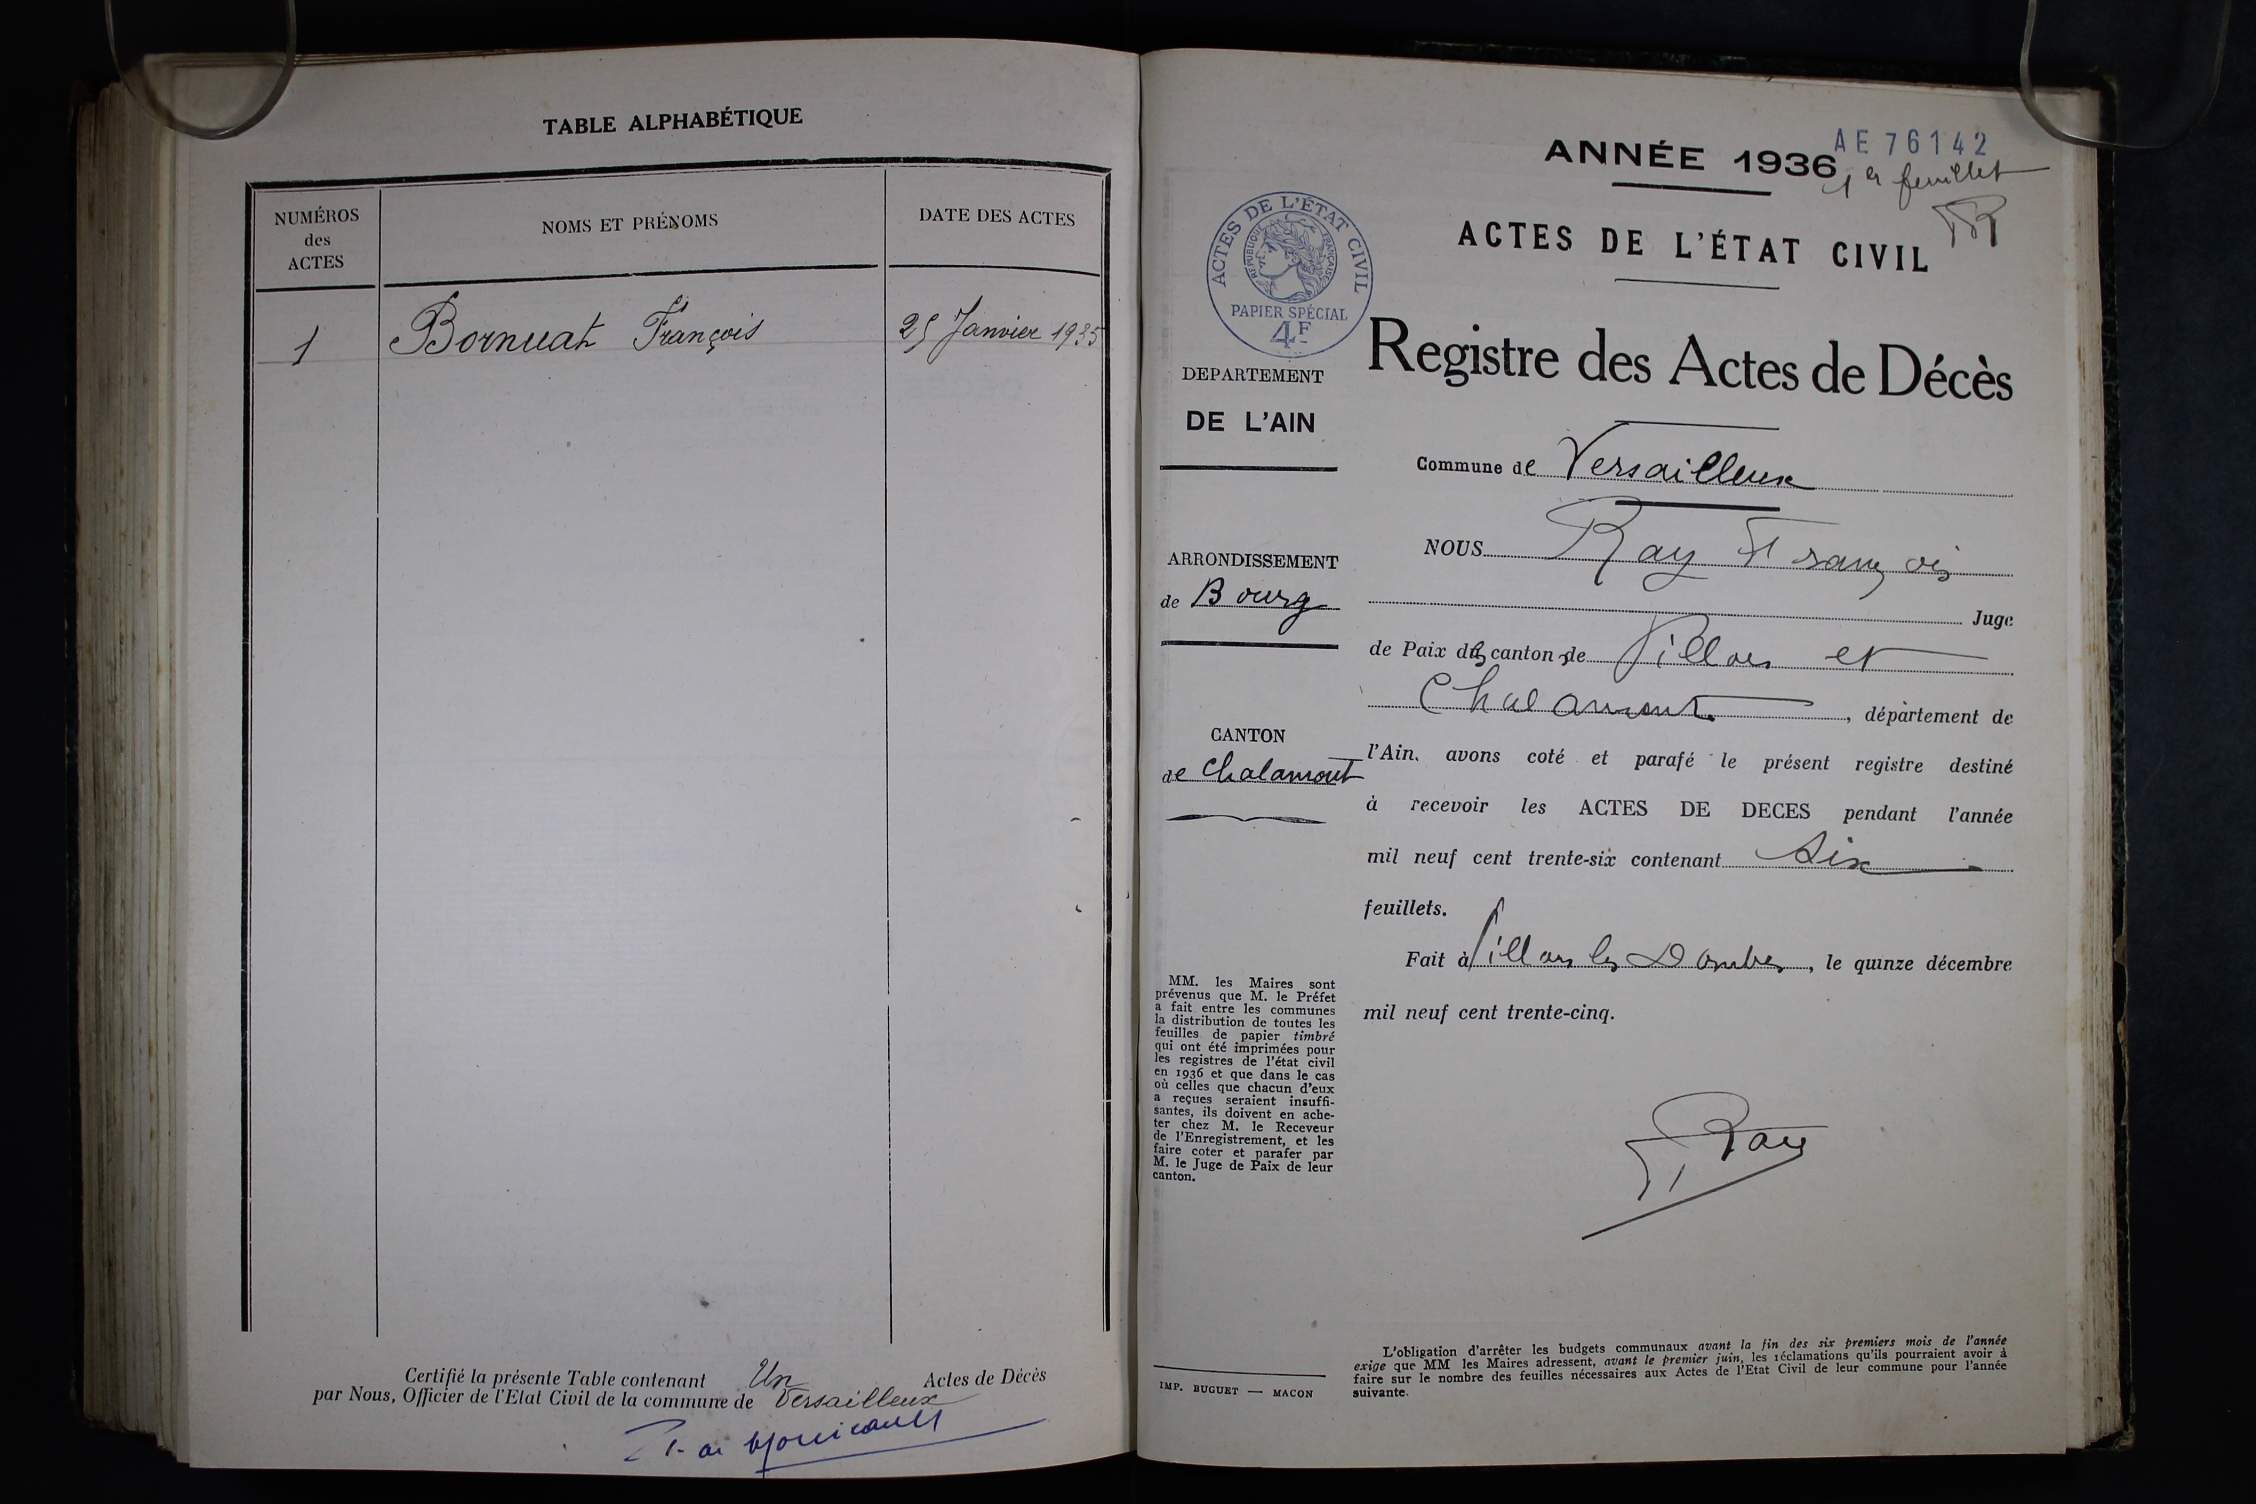 TABLE ALPHABÉTIQUE
NUMÉROS
des
ACTES
NOMS ET PRÉNOMS
DATE DES ACTES
1 Bornuat François 25 Janvier 1935
Certifié la présente Table contenant Un Actes de Décès
par Nous, Officier de l'Etat Civil de la commune de Versailleux
AE 76142
ANNÉE 1936
1er feuillet
FR
ACTES DE L'ÉTAT CIVIL
ACTES DE L'ÉTAT CIVIL
RÉPUBLIQUE FRANÇAISE
PAPIER SPÉCIAL
4F
Registre des Actes de Décès
DEPARTEMENT
DE L'AIN
Commune de Versailleux
ARRONDISSEMENT
de Bourg
CANTON
de Chalamont
NOUS Ray François
Juge
de Paix des cantons de Villars et
Chalamont, département de
l'Ain, avons coté et parafé le présent registre destiné
à recevoir les ACTES DE DECES pendant l'année
mil neuf cent trente-six contenant Six
feuillets.
Fait à Villars les Dombes, le quinze décembre
mil neuf cent trente-cinq.
F. Ray
MM. les Maires sont
prévenus que M. le Préfet
a fait entre les communes
la distribution de toutes les
feuilles de papier timbré
qui ont été imprimées pour
les registres de l'état civil
en 1936 et que dans le cas
où celles que chacun d'eux
a reçues seraient insuffi-
santes, ils doivent en ache-
ter chez M. le Receveur
de l'Enregistrement, et les
faire coter et parafer par
M. le Juge de Paix de leur
canton.
IMP. BUGUET — MACON
L'obligation d'arrêter les budgets communaux avant la fin des six premiers mois de l'année
exige que MM les Maires adressent, avant le premier juin, les réclamations qu'ils pourraient avoir à
faire sur le nombre des feuilles nécessaires aux Actes de l'Etat Civil de leur commune pour l'année
suivante.